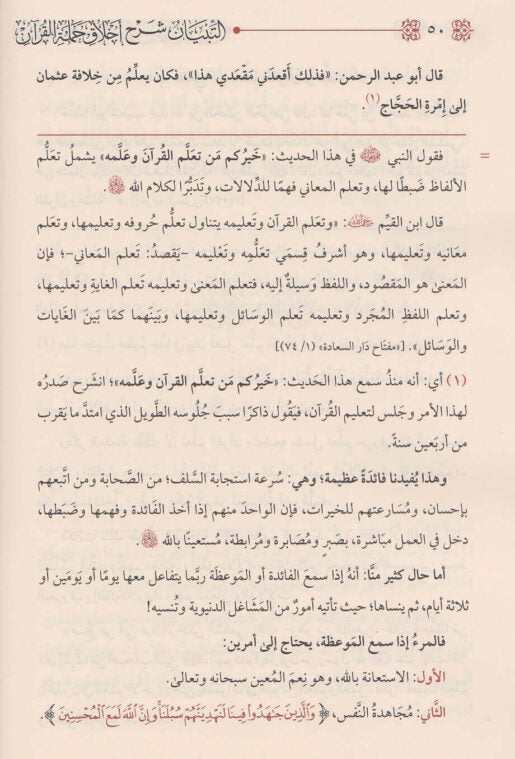 ٥٠ التبيان شرح أخلاق حملة القرآن
قال أبو عبد الرحمن: «فذلك أَقعدَني مَقْعَدي هذا»، فكان يعلِّمُ مِن خِلافة عثمان
إلى إِمْرةِ الحَجَّاج(١).
= فقول النبي ﷺ في هذا الحديث: «خَيرُكم مَن تعلَّم القرآنَ وعلَّمه» يشملُ تعلُّم
الألفاظ ضَبطًا لها، وتعلم المعاني فهمًا للدِّلالات، وتَدَبُّرًا لكلام الله ﷻ.
قال ابن القيِّم رحمه الله: «وتعلم القرآن وتعليمه يتناول تعلُّم حُروفه وتعليمها، وتعلم
معَانيه وتَعليمها، وهو أشرفُ قِسمَي تعلُّمِه وتَعْليمه -يَقصدُ: تَعلم المعاني-؛ فإن
المَعنىٰ هو المَقصُود، واللفظ وَسيلةٌ إليه، فتعلم المَعنىٰ وتعليمه تَعلم الغايةِ وتعليمها،
وتعلم اللفظِ المُجَرد وتعليمه تَعلم الوسَائل وتعليمها، وبَينَهما كمَا بَينَ الغَايات
والوَسَائل». [«مفتَاح دَار السعادة» (١/ ٧٤)]
(١) أي: أنه منذُ سمع هذا الحَديث: «خَيرُكم مَن تعلَّم القرآن وعلَّمه»؛ انشَرح صَدرُه
لهذا الأمر وجَلس لتعليم القُرآن، فيَقُول ذاكرًا سببَ جُلُوسه الطَّويل الذي امتدَّ ما يَقرب
من أربَعين سَنةً.
وهذا يُفيدنا فائدَةً عظيمة؛ وهي: سُرعة استجابة السلف؛ من الصَّحابة ومن اتَّبعهم
بإحسان، ومُسَارعتهم للخيرات، فإن الواحدَ منهم إذا أخذ الفَائدة وفهمها وضَبطها،
دخل في العمل مبَاشرة، بصَبرٍ ومُصَابرة ومُرابطة، مُستَعينًا بالله ﷻ.
أما حال كثير منَّا: أنهُ إذا سمعَ الفائدة أو المَوعظَة ربَّما يتفاعل معها يومًا أو يَومَين أو
ثلاثة أيام، ثم ينساها؛ حيث تأتيه أمورٌ من المَشَاغل الدنيوية وتُنسيه!
فالمرءُ إذا سمع المَوعظة، يحتاج إلى أمرَين:
الأول: الاستعانة بالله، وهو نِعمَ المُعين سبحانه وتعالىٰ.
الثَّاني: مُجَاهدةُ النَّفس، ﴿وَالَّذِينَ جَاهَدُوا فِينَا لَنَهْدِيَنَّهُمْ سُبُلَنَا وَإِنَّ اللَّهَ لَمَعَ الْمُحْسِنِينَ﴾.